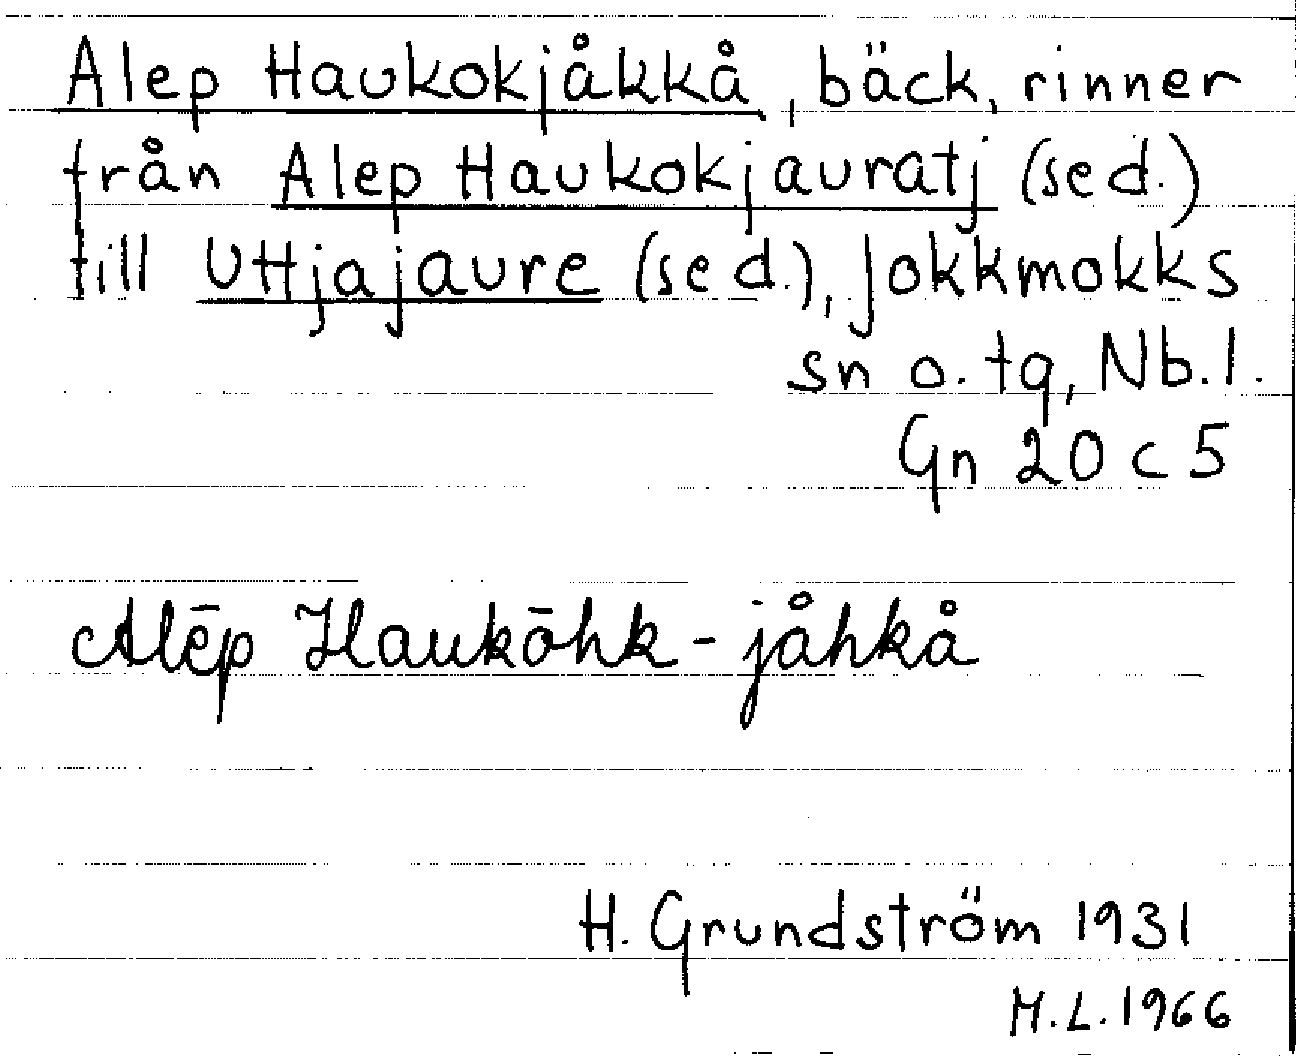 Alep Haukokjåkkå, bäck, rinner
från Alep Haukokjauratj (sed.)
till Uttjajaure (sed.), Jokkmokks
sn o. tg, Nb.l.
Gn 20 c 5
Alēp Haukōhk-jåhkå
H. Grundström 1931
M.L. 1966